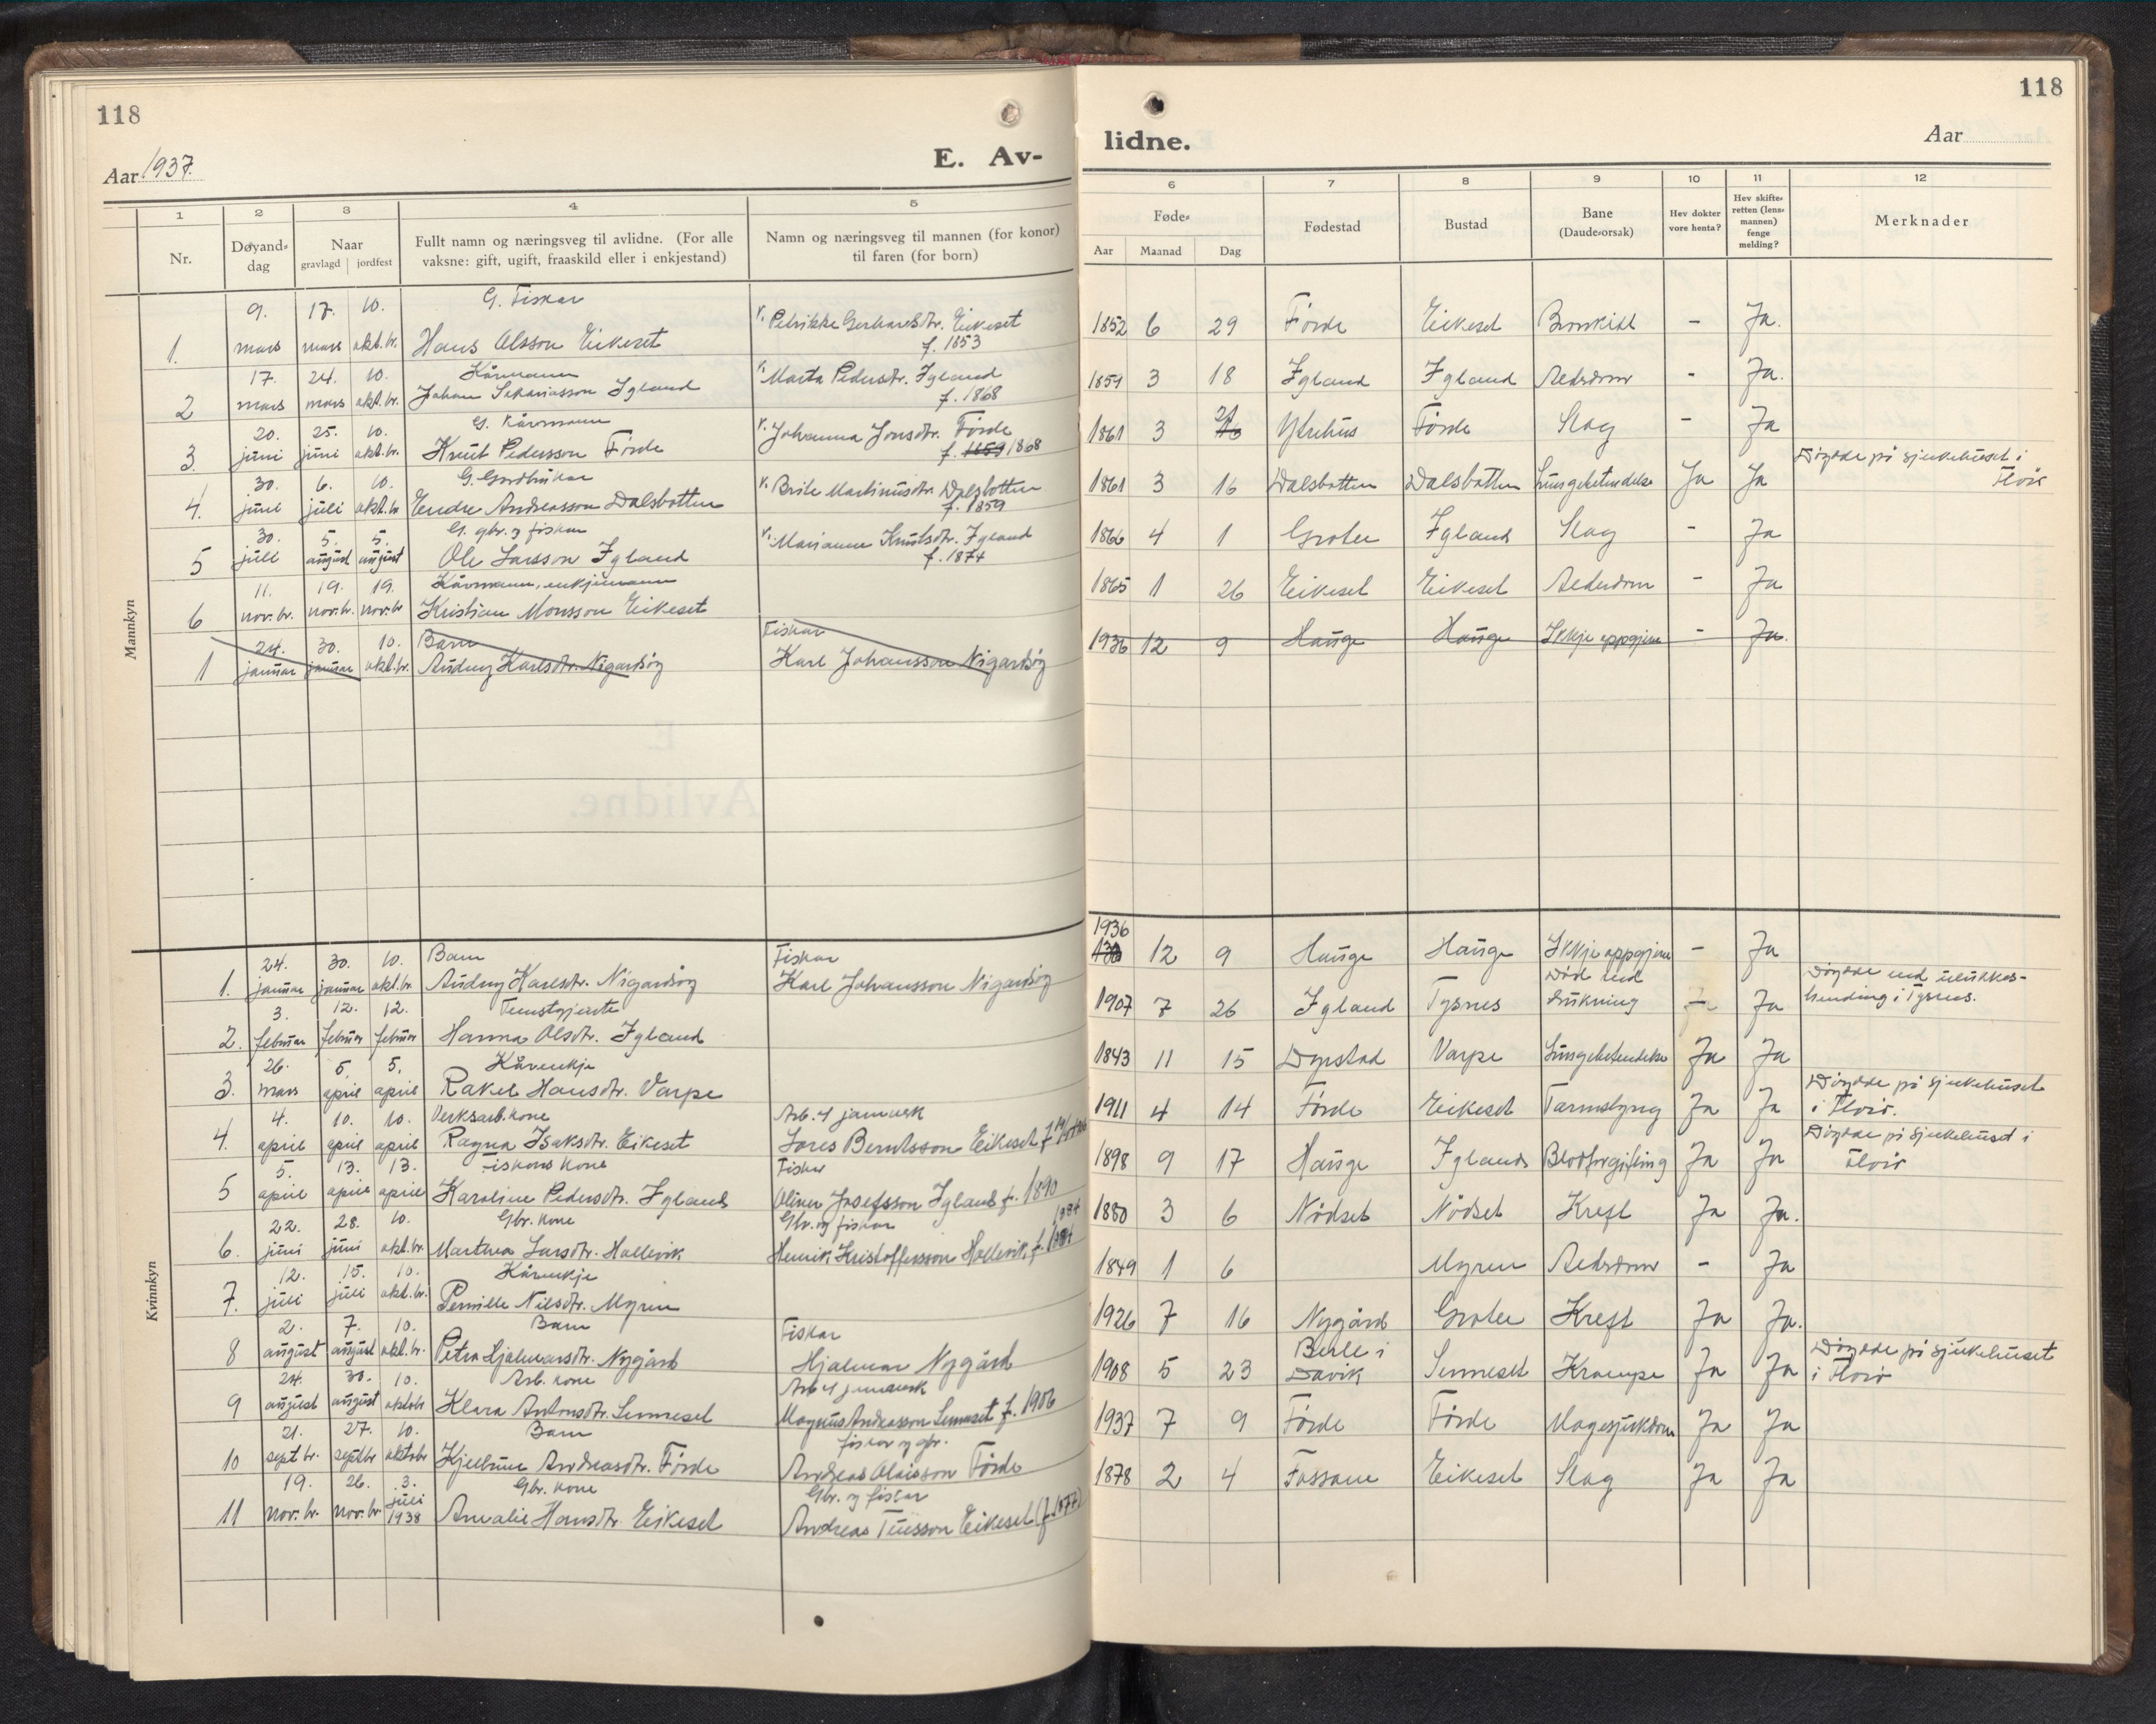 118
Aar 1937.
E. Av-
1
2
3
4
5
Nr.
Døyand-
dag
Naar
gravlagd | jordfest
Fullt namn og næringsveg til avlidne. (For alle
vaksne: gift, ugift, fraaskild eller i enkjestand)
Namn og næringsveg til mannen (for konor)
til faren (for born)
Mannkyn
9. 17. 10. G. Fiskar
1. mars mars okt.br. Hans Olsson Eikeset
k. Petrikke Gerhardstr. Eikeset
f. 1853
17. 24. 10. Kårmann
2 mars mars okt.br. Johan Sakariasson Igland
k. Marta Pedersdtr. Igland
f. 1868
20. 25. 10. G. Kårmann
3. juni juni okt.br. Knut Pedersson Förde
k. Johanna Jonsdtr. Förde
f. 1859 1868
30. 6. 10. G. Gardbrukar
4. juni juli okt.br Endre Andreasson Dalsbotten
k. Brite Martinusdtr. Dalsbotten
f. 1859
30. 5. 5. G. gbr. og fiskar
5 juli august august Ole Larsson Igland
k. Marianne Knutsdtr. Igland
f. 1874
11. 19. 19. Kårmann, enkjemann
6 nov.br. nov.br. nov.br Kristian Monsson Eikeset
24. 30. 10. Barn Fiskar
1 januar januar okt.br. Audny Karlsdtr. Nigardsöy Karl Johansson Nigardsöy
Kvinnkyn
24. 30. 10. Barn Fiskar
1. januar januar okt.br. Audny Karlsdtr. Nigardsöy Karl Johansson Nigardsöy
3. 12. 12. Tenestgjente
2. februar februar februar Hanna Olsdtr. Igland
26. 5. 5. Kårenkje
3. mars april april Rakel Hansdtr. Varpe
4. 10. 10. Verksarb. kone Arb. v/ jarnverk
4. april april april Ragna Isaksdtr. Eikeset Lores Berntsson Eikeset
5. 13. 13. Fiskars kone Fiskar
5 april april april Karoline Pedersdtr. Igland Oliver Josefsson Igland f. 1890
22. 28. 10. Gbr. kone Gbr. og fiskar 1884
6. juni juni okt.br. Marthea Larsdtr. Hallevik Henrik Kristoffersson Hallevik, f.
12. 15. 10. Kårenkje
7. juli juli okt.br. Pernille Nilsdtr. Myren
2. 7. 10. Barn Fiskar
8 august august okt.br. Petra Hjalmarsdtr. Nygård Hjalmar Nygård
24. 30. 10. Arb. kone Arb v/ jarnverk
9 august august oktobr Klara Antonsdtr. Senneset Magnus Andreasson Senneset f. 1906
21. 27. 10. Barn fiskar og gbr.
10 sept br. septbr oktobr Kjellrun Andreasdtr. Förde Andreas Olaisson Förde
19. 26. 3. Gbr. kone Gbr. og fiskar
11 nov.br. nov.br juli 1938 Amalie Hansdtr Eikeset Andreas Tuesson Eikeset (f. 1877)
118
lidne.
Aar
6
7
8
9
10
11
12
Føde-
Aar Maanad Dag
Fødestad
Bustad
Bane
(Daude-orsak)
Hev dokter
vore henta?
Hev skifte-
retten (lens-
mannen)
fenge
melding?
Merknader
1852 6 29 Förde Eikeset Bronkitt - Ja.
1859 3 18 Igland Igland Aldrdom - Ja.
1861 3 21 Ytrehus Förde Slag - Ja
1861 3 16 Dalsbotten Dalsbotten Lungebetendelse Ja Ja Döydde på sjukehuset i
Florö
1866 4 1 Grotle Igland Slag - Ja
1865 1 26 Eikeset Eikeset Alderdom - Ja
1936 12 9 Hauge Hauge Ikkje oppgjeve - Ja.
1936
12 9 Hauge Hauge Ikkje oppgjeve - Ja
1907 7 26 Igland Tysnes Död ved
drukning - Ja Döydde ved ulukkes-
hending i Tysnes.
1843 11 15 Dyrstad Varpe Lungebetendelse Ja Ja
1911 4 14 Förde Eikeset Tarmslyng Ja Ja Döydde på sjukehuset
i Florö.
1898 9 17 Hauge Igland Blodforgifting Ja Ja Döydde på sjukehuset i
Florö
1880 3 6 Nödset Nödset Kreft Ja Ja.
1849 1 6 Myren Aldrdom - Ja
1926 7 16 Nygård Grotle Kreft Ja Ja.
1908 5 23 Berle i
Davik Senneset Krampe Ja Ja Döydde på sjukehuset
i Florö
1937 7 9 Förde Förde Magesjukdom Ja Ja
1878 2 4 Fossane Eikeset Slag Ja Ja